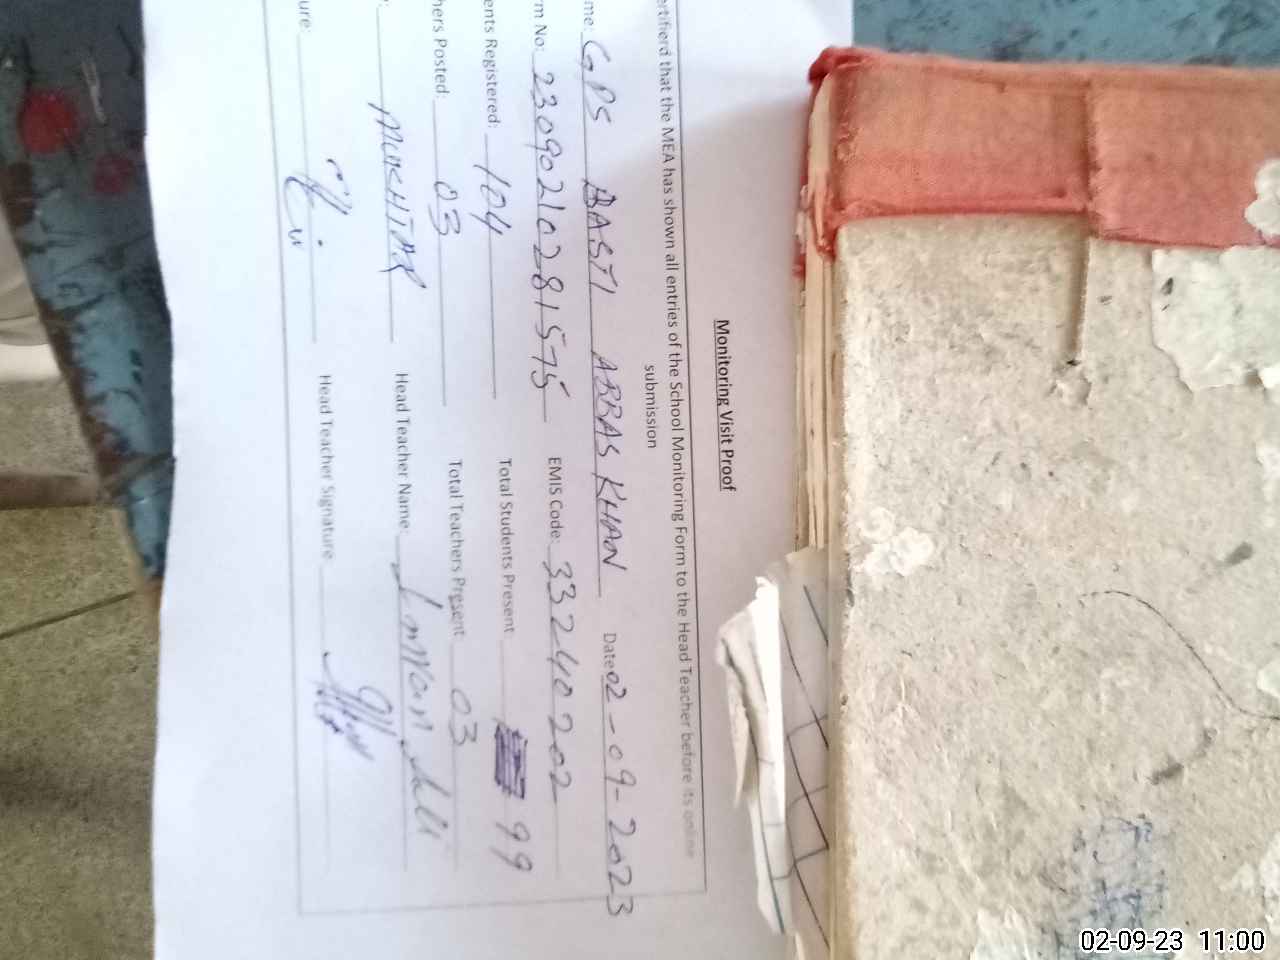 Monitoring Visit Proof
ertifierd that the MEA has shown all entries of the School Monitoring Form to the Head Teacher before its online
submission
me: GPS BASTI ABBAS KHAN Date 02-09-2023
rm No: 23090210281575 EMIS Code: 33240202
ents Registered: 104 Total Students Present 99
hers Posted: 03 Total Teachers Present 03
MUKHTAR Head Teacher Name: Imran Ali
ure: Head Teacher Signature
02-09-23 11:00